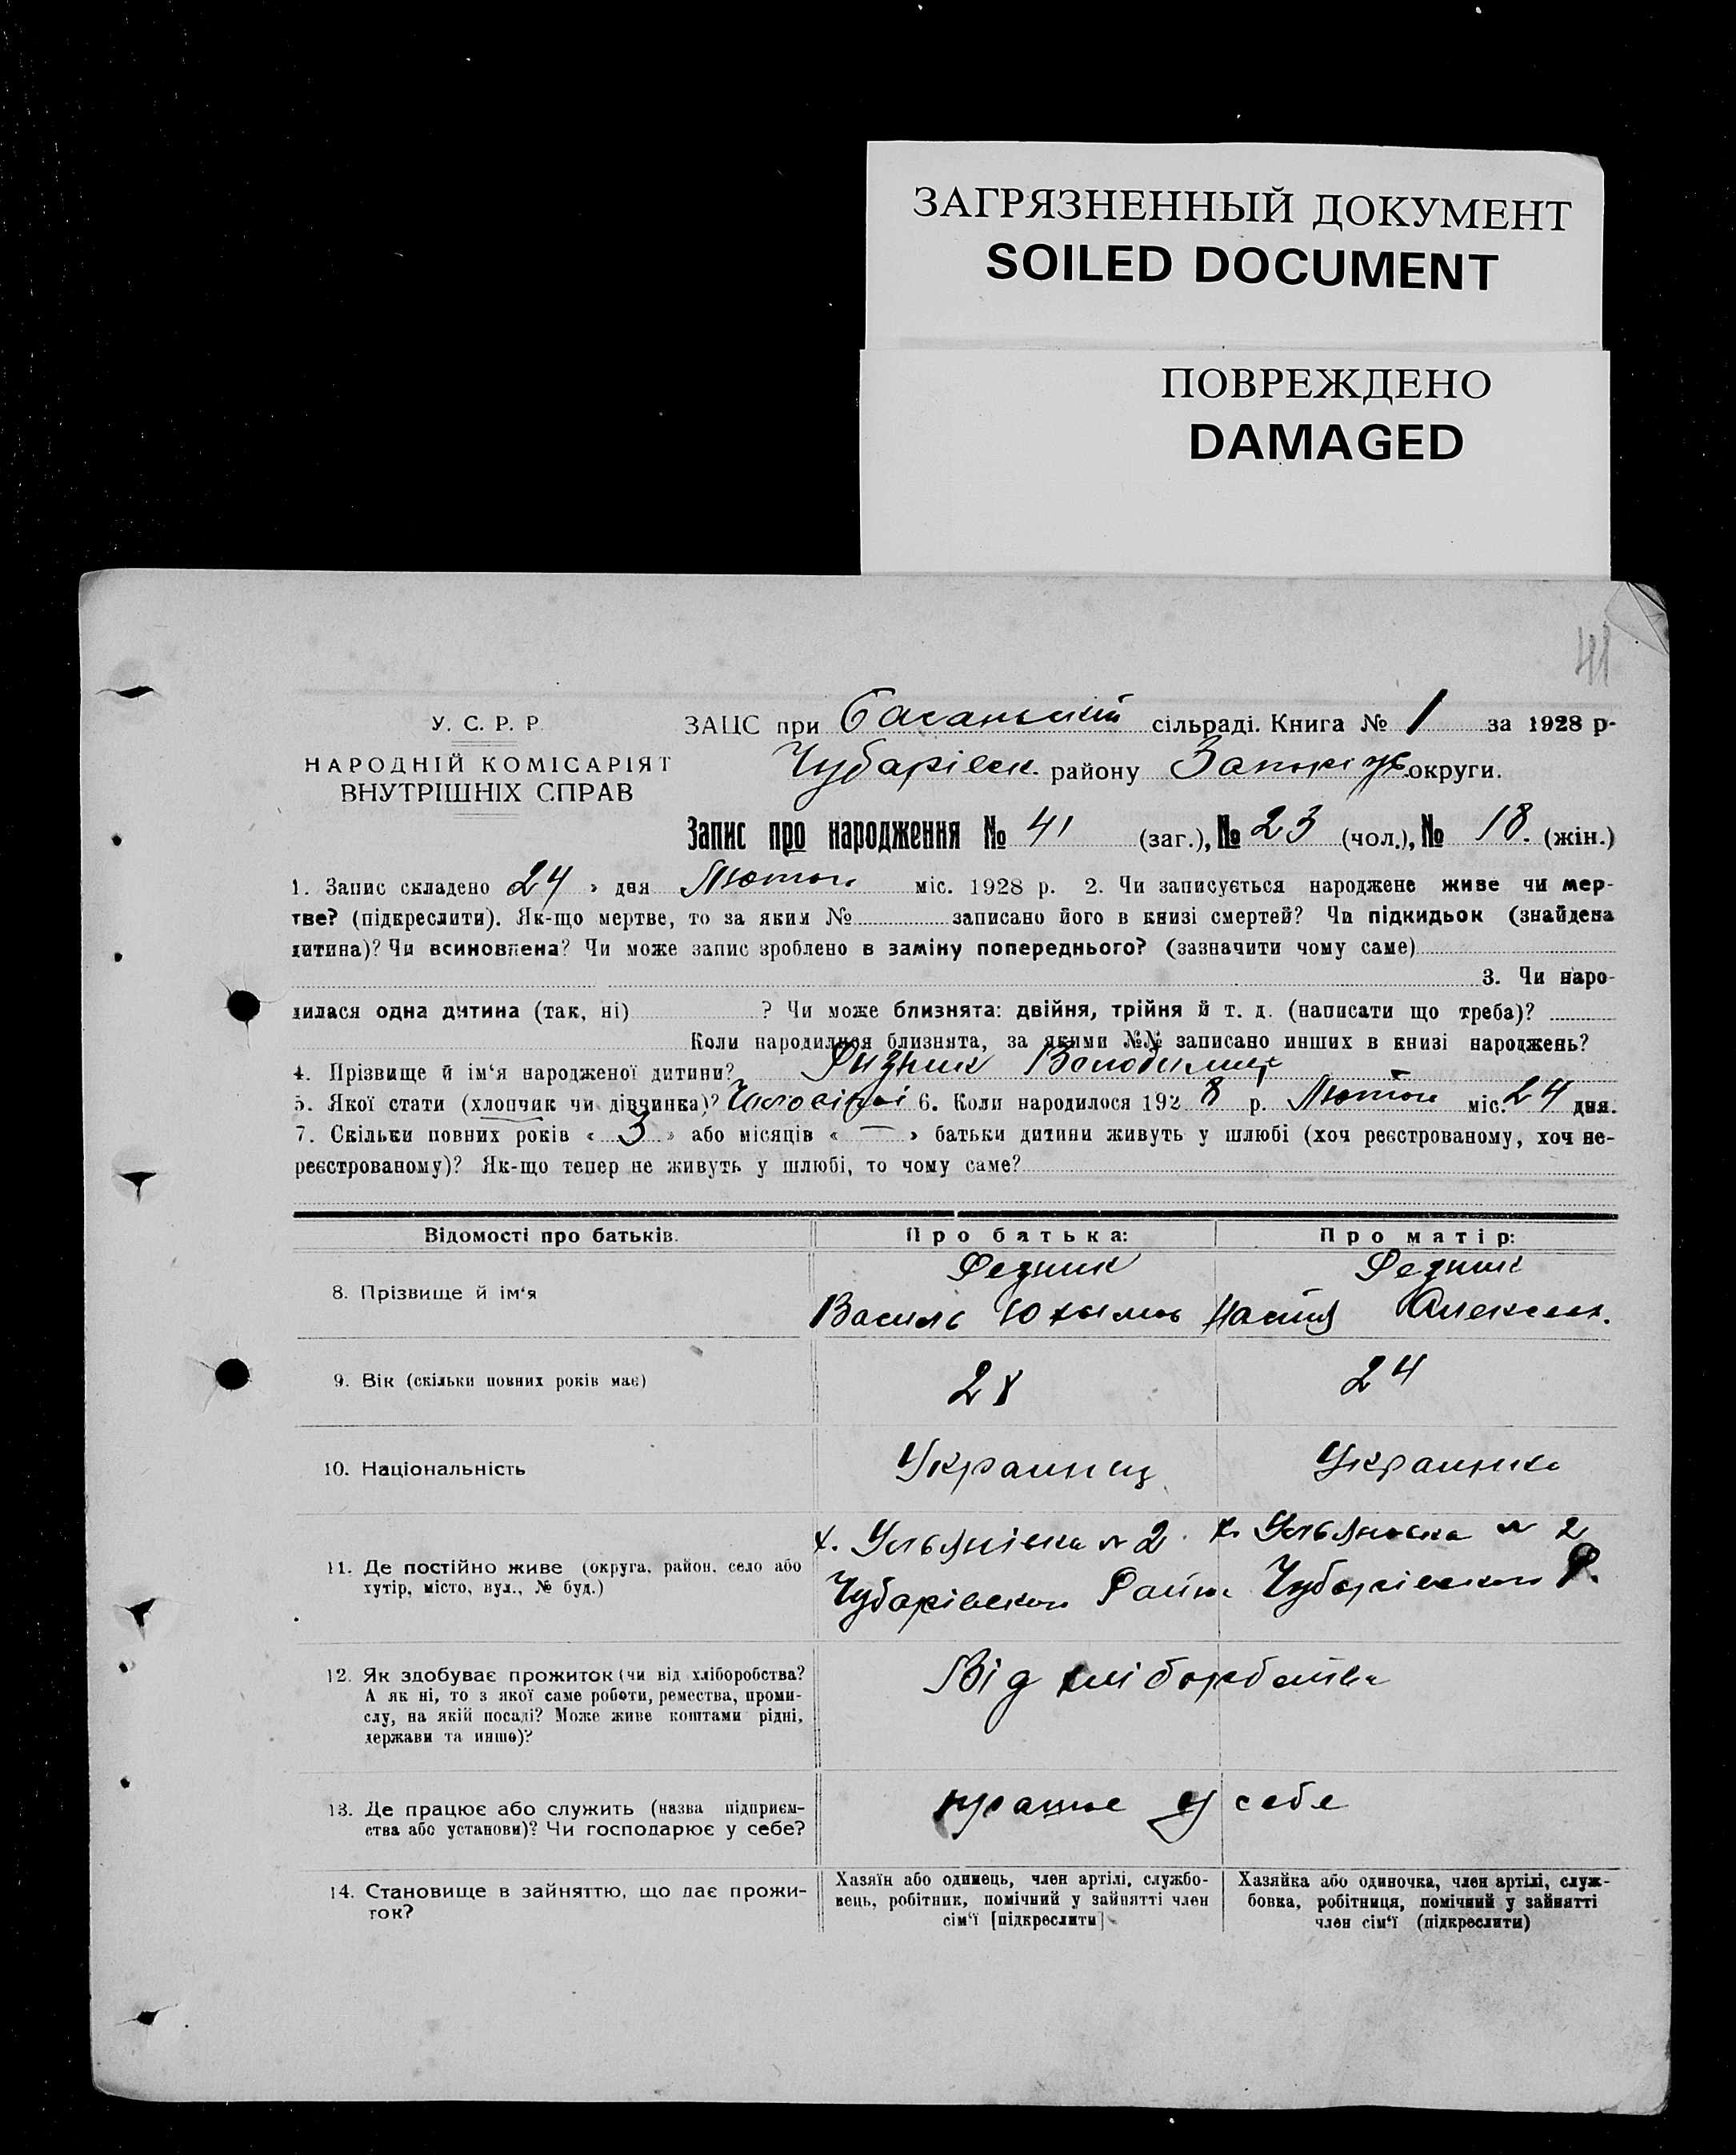 ЗАГРЯЗНЕННЫЙ ДОКУМЕНТ
SOILED DOCUMENT
ПОВРЕЖДЕНО
DAMAGED
41
У. С. Р. Р.
НАРОДНІЙ КОМІСАРІЯТ
ВНУТРІШНІХ СПРАВ
ЗАЦС при Басанський сільраді. Книга № 1 за 1928 р.
Чубарівск. району Запоріз округи.
Запис про народження № 41 (заг.), № 23 (чол.), № 18. (жін.)
1. Запис складено 24 » дня Лютого міс. 1928 р. 2. Чи записується народжене живе чи мер-
тве? (підкреслити). Як-що мертве, то за яким № записано його в книзі смертей? Чи підкидьок (знайдена
дитина)? Чи всиновлена? Чи може запис зроблено в заміну попереднього? (зазначити чому саме)
3. Чи наро-
дилася одна дитина (так, ні) ? Чи може близнята: двійня, трійня й т. д. (написати що треба)?
Коли народилися близнята, за якими №№ записано инших в книзі народжень?
4. Прізвище й ім'я народженої дитини? Ризник Володимир
5. Якої стати (хлопчик чи дівчинка)? 6. Коли народилося 1928 р. Лютого міс. 24 дня.
7. Скільки повних років « 3 » або місяців « — » батьки дитини живуть у шлюбі (хоч реєстрованому, хоч не-
реєстрованому)? Як-що тепер не живуть у шлюбі, то чому саме?
Відомості про батьків. Про батька: Про матір:
8. Прізвище й ім'я Резник Резник
Василь Юхымов Настя Алексеев.
9. Вік (скільки повних років має) 28 24
10. Національність Украинец Украинка
11. Де постійно живе (округа, район, село або хутір, місто, вул., № буд.) х. Ульянівка № 2 х. Ульяновка № 2
Чубарівского Район Чубарівского Р.
12. Як здобуває прожиток (чи від хліборобства?
А як ні, то з якої саме роботи, ремества, проми-
слу, на якій посаді? Може живе коштами рідні,
держави та инше)?
Від хліборобства
13. Де працює або служить (назва підприєм-
ства або установи)? Чи господарює у себе?
працює у себе
14. Становище в зайняттю, що дає прожи-
ток?
Хазяїн або одинець, член артілі, службо-
вець, робітник, помічний у зайнятті член
сім'ї [підкреслити]
Хазяйка або одиночка, член артілі, служ-
бовка, робітниця, помічний у зайнятті
член сім'ї (підкреслити)